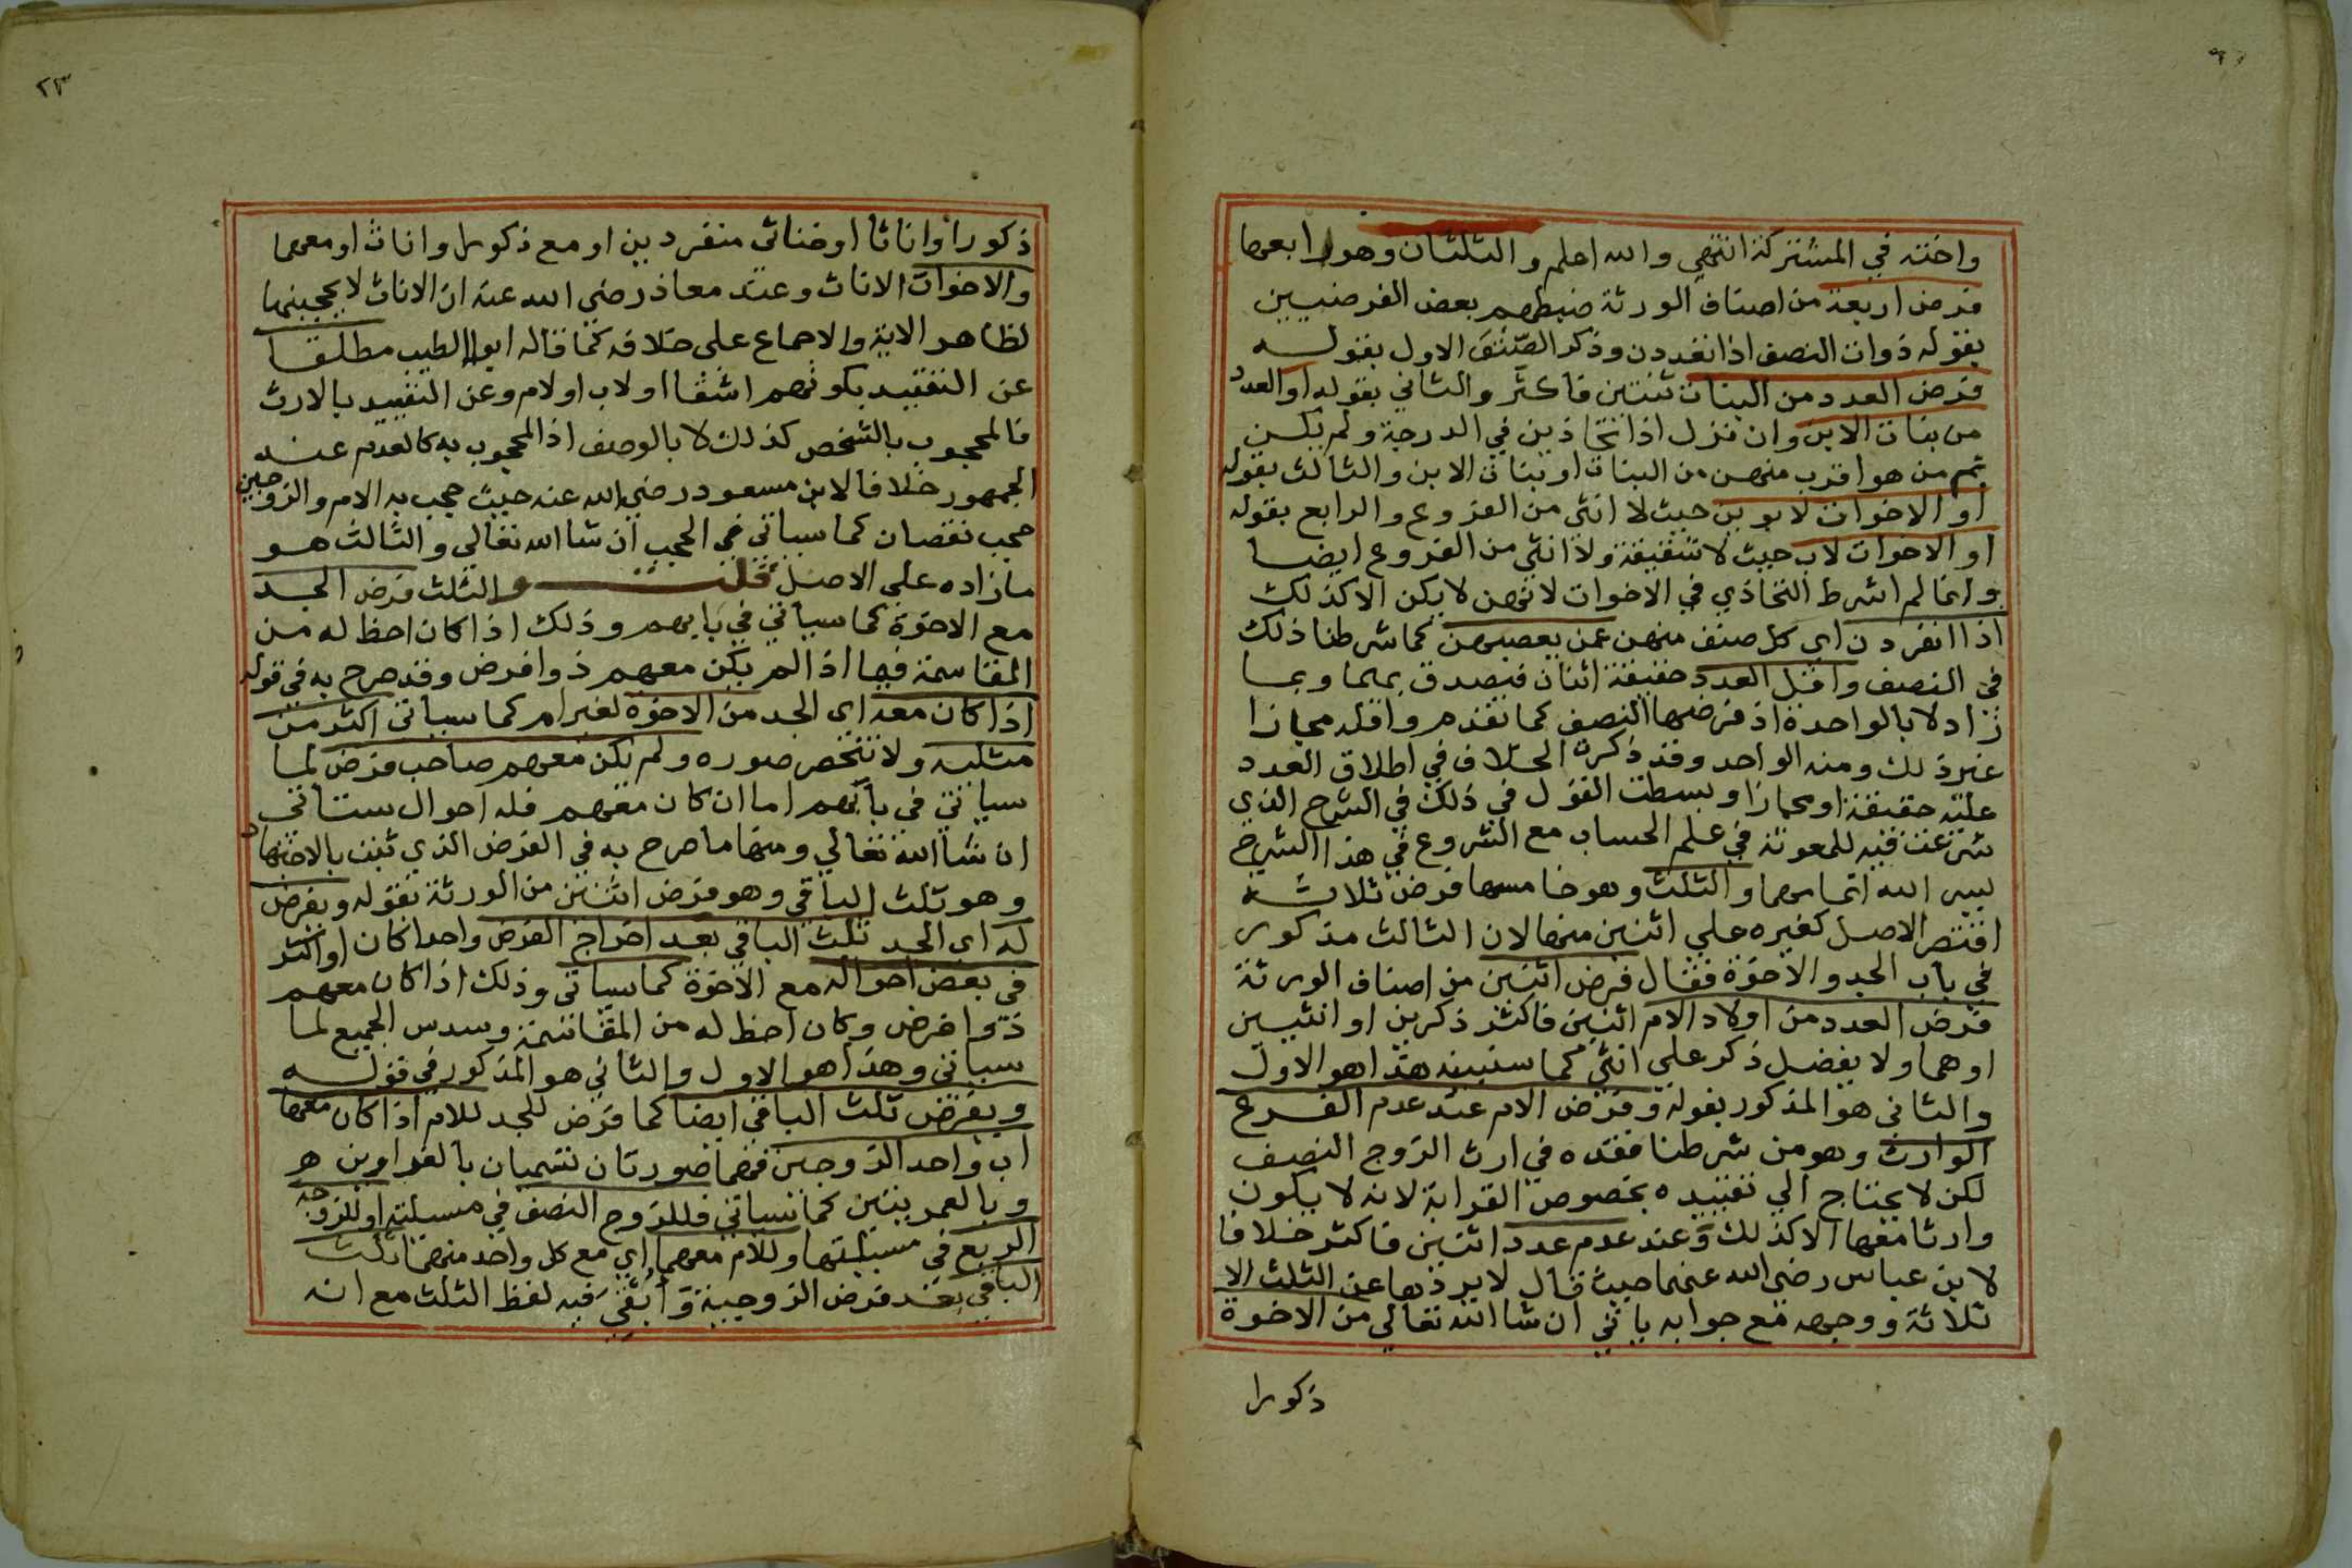 واخته في المشتركة انتهى والله اعلم والثلثان وهو رابعها
فرض اربعة من اصناف الورثة ضبطهم بعض الفرضيين
بقوله ذوات النصف اذا تعددن وذكر الصنف الاول بقوله
فرض العدد من البنات ثنتين فاكثر والثاني بقوله او العدد
من بنات الابن وان نزل اذا تحاذين في الدرجة ولم يكن
ثم من هو اقرب منهن من البنات او بنات الابن والثالث بقوله
او الاخوات لابوين حيث لا انثى من الفروع والرابع بقوله
او الاخوات لاب حيث لا شقيقة ولا انثى من الفروع ايضا
وانما لم اشرط التحاذي في الاخوات لانهن لا يكن الا كذلك
اذا انفردن اي كل صنف منهن عمن يعصبهن كما شرطنا ذلك
في النصف واقل العدد حقيقة اثنان فيصدق بهما وبما
زاد لا بالواحدة اذ فرضها النصف كما تقدم واقله مجازا
غير ذلك ومنه الواحد وقد ذكرة الخلاف في اطلاق العدد
عليه حقيقة او مجازا وبسطت القول في ذلك في الشرح الذي
شرعت فيه للمعونة في علم الحساب مع الشروع في هذا الشرح
يسر الله اتمامهما والثلث وهو خامسها فرض ثلاثة
اقتصر الاصل كغيره على اثنين منها لان الثالث مذكور
في باب الجد والاخوة فقال فرض اثنين من اصناف الورثة
فرض العدد من اولاد الام اثنين فاكثر ذكرين او انثيين
او هما ولا يفضل ذكر على انثى كما سنبينه هذا هو الاول
والثاني هو المذكور بقوله وفرض الام عند عدم الفرع
الوارث وهو من شرطنا فقده في ارث الزوج النصف
لكن لا يحتاج الى تقييده بخصوص القرابة لانه لا يكون
وارثا معها الا كذلك وعند عدم عدد اثنين فاكثر خلافا
لابن عباس رضي الله عنهما حيث قال لا يردها عن الثلث الا
ثلاثة ووجهه مع جوابه ياتي ان شا الله تعالى من الاخوة
ذكورا
٢٣
ذكورا واناثا او خناثى منفردين او مع ذكور واناث او معهما
والاخوات الاناث وعند معاذ رضي الله عنه ان الاناث لا يحجبنها
لظاهر الاية والاجماع على خلافه كما قاله ابو الطيب مطلقا
عن التقييد بكونهم اشقا او لاب او لام وعن التقييد بالارث
فالمحجوب بالشخص كذلك لا بالوصف اذ المحجوب به كالعدم عند
الجمهور خلافا لابن مسعود رضي الله عنه حيث حجب به الام والزوجين
حجب نقصان كما سياتي في الحجب ان شا الله تعالى والثالث هو
ما زاده على الاصل قلت والثلث فرض الجد
مع الاخوة كما سياتي في بابهم وذلك اذا كان احظ له من
المقاسمة فيها اذا لم يكن معهم ذوا فرض وقد صرح به في قوله
اذا كان معه اي الجد من الاخوة لغير ام كما سياتي اكثر من
مثليه ولا تنحصر صوره ولم يكن معهم صاحب فرض لما
سياتي في بابهم اما ان كان معهم فله احوال ستاتي
ان شا الله تعالى ومنها ما صرح به في الفرض الذي ثبت بالاجتهاد
وهو ثلث الباقي وهو فرض اثنين من الورثة بقوله ويفرض
له اي الجد ثلث الباقي بعد اخراج الفرض واحدا كان او اكثر
في بعض احواله مع الاخوة كما سياتي وذلك اذا كان معهم
ذوا فرض وكان احظ له من المقاسمة وسدس الجميع لما
سياتي وهذا هو الاول والثاني هو المذكور في قوله
ويفرض ثلث الباقي ايضا كما فرض للجد للام اذا كان معها
اب واحد الزوجين فهما صورتان تسميان بالغراوين
وبالعمريتين كما سياتي فللزوج النصف في مسيلته او للزوجة
الربع في مسيلتها وللام معهما اي مع كل واحد منهما ثلث
الباقي بعد فرض الزوجية وابقي فيه لفظ الثلث مع انه